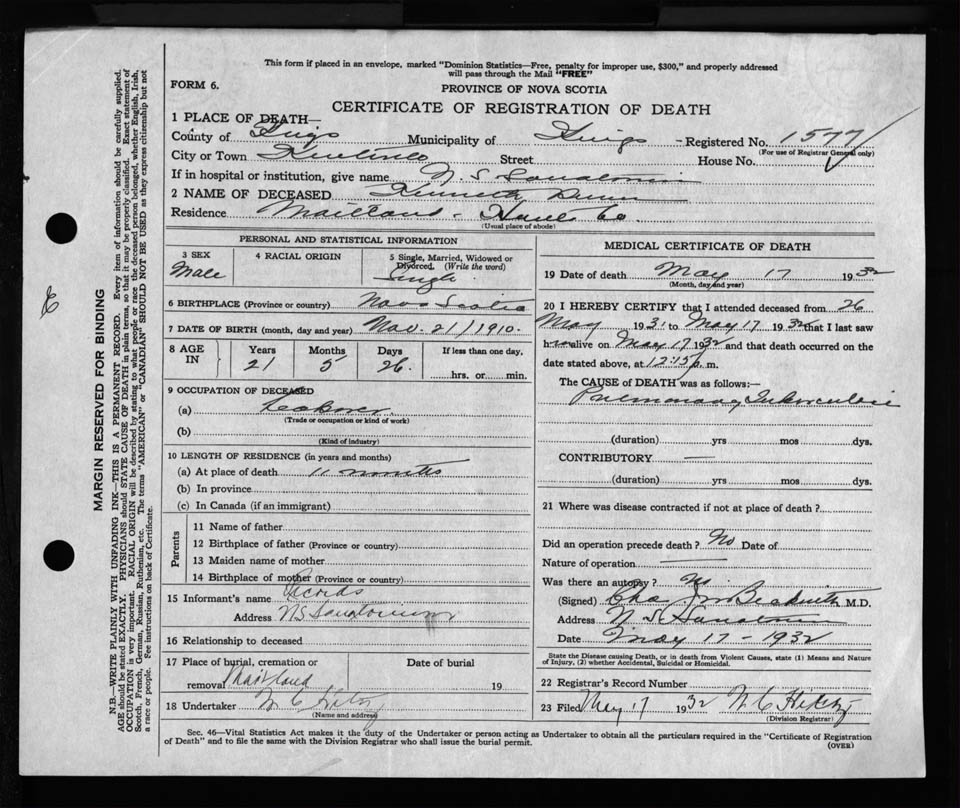 This form if placed in an envelope, marked "Dominion Statistics—Free, penalty for improper use, $300," and properly addressed
will pass through the Mail "FREE"
FORM 6.
PROVINCE OF NOVA SCOTIA
CERTIFICATE OF REGISTRATION OF DEATH
1 PLACE OF DEATH—
County of Kings Municipality of Kings - Registered No. 1577
(For use of Registrar General only)
City or Town Kentville Street House No.
If in hospital or institution, give name N. S. Sanatorium
2 NAME OF DECEASED Kenneth
Residence Maitland - Hants Co
(Usual place of abode)
PERSONAL AND STATISTICAL INFORMATION
3 SEX
Male
4 RACIAL ORIGIN
5 Single, Married, Widowed or
Divorced. (Write the word)
Single
6 BIRTHPLACE (Province or country) Nova Scotia
7 DATE OF BIRTH (month, day and year) Nov. 21/1910.
8 AGE IN
Years Months Days If less than one day,
21 5 26.
hrs. or min.
9 OCCUPATION OF DECEASED
(a)
(Trade or occupation or kind of work)
(b)
(Kind of industry)
10 LENGTH OF RESIDENCE (in years and months)
(a) At place of death 11 months
(b) In province
(c) In Canada (if an immigrant)
Parents
11 Name of father
12 Birthplace of father (Province or country)
13 Maiden name of mother
14 Birthplace of mother (Province or country)
15 Informant's name Records
Address N S Sanatorium
16 Relationship to deceased
17 Place of burial, cremation or Date of burial
removal Maitland 19
18 Undertaker
(Name and address)
MEDICAL CERTIFICATE OF DEATH
19 Date of death May 17 1932
(Month, day and year)
20 I HEREBY CERTIFY that I attended deceased from 26
May 1931 to May 17 1932 that I last saw
him alive on May 17 1932 and that death occurred on the
date stated above, at 12:15 p. m.
The CAUSE of DEATH was as follows:—
Pulmonary Tuberculosis
(duration) yrs mos dys.
CONTRIBUTORY —
(duration) yrs mos dys.
21 Where was disease contracted if not at place of death?
Did an operation precede death? No Date of
Nature of operation —
Was there an autopsy? No.
(Signed) M.D.
Address N S Sanatorium
Date May 17 - 1932
State the Disease causing Death, or in death from Violent Causes, state (1) Means and Nature
of Injury, (2) whether Accidental, Suicidal or Homicidal.
22 Registrar's Record Number
23 Filed May 17 1932
(Division Registrar)
Sec. 46—Vital Statistics Act makes it the duty of the Undertaker or person acting as Undertaker to obtain all the particulars required in the "Certificate of Registration
of Death" and to file the same with the Division Registrar who shall issue the burial permit.
(OVER)
MARGIN RESERVED FOR BINDING
N.B.—WRITE PLAINLY WITH UNFADING INK—THIS IS A PERMANENT RECORD. Every item of information should be carefully supplied.
AGE should be stated EXACTLY. PHYSICIANS should STATE CAUSE OF DEATH in plain terms, so that it may be properly classified. Exact statement of
OCCUPATION is very important. RACIAL ORIGIN will be described by stating to what people or race the deceased person belonged, whether English, Irish,
Scotch, French, German, Russian, Ruthenian, etc. The terms "AMERICAN" or "CANADIAN" SHOULD NOT BE USED as they express citizenship but not
a race or people. See instructions on back of Certificate.